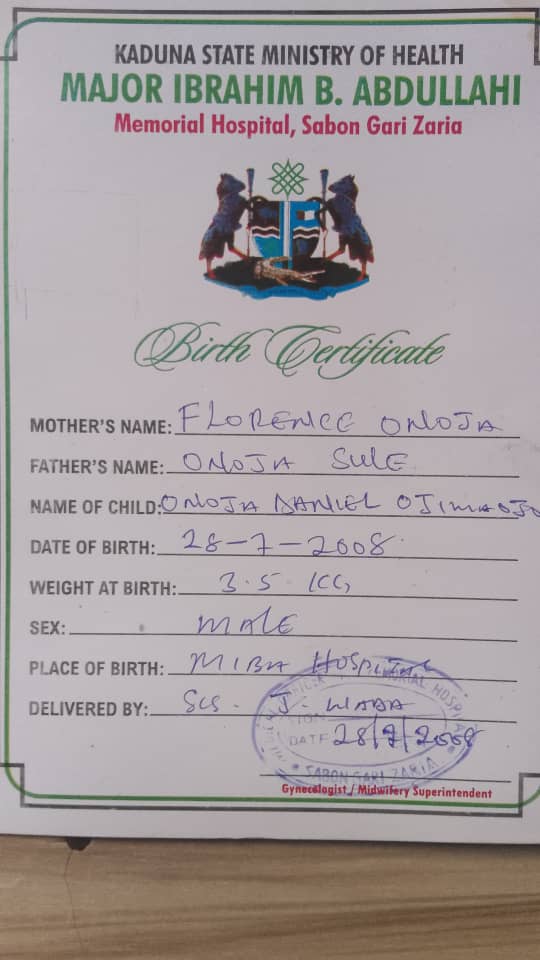 KADUNA STATE MINISTRY OF HEALTH
MAJOR IBRAHIM B. ABDULLAHI
Memorial Hospital, Sabon Gari Zaria
Birth Certificate
MOTHER'S NAME: FLORENCE ONOJA
FATHER'S NAME: ONOJA SULE
NAME OF CHILD: ONOJA DANIEL OJIMAOJO
DATE OF BIRTH: 28-7-2008
WEIGHT AT BIRTH: 3.5 KG
SEX: MALE
PLACE OF BIRTH: MIBA HOSPITAL
DELIVERED BY: J.
MORIAL HOSPITAL
SIGN
DATE 28/7/2008
SABON GARI ZARIA
Gynecologist / Midwifery Superintendent